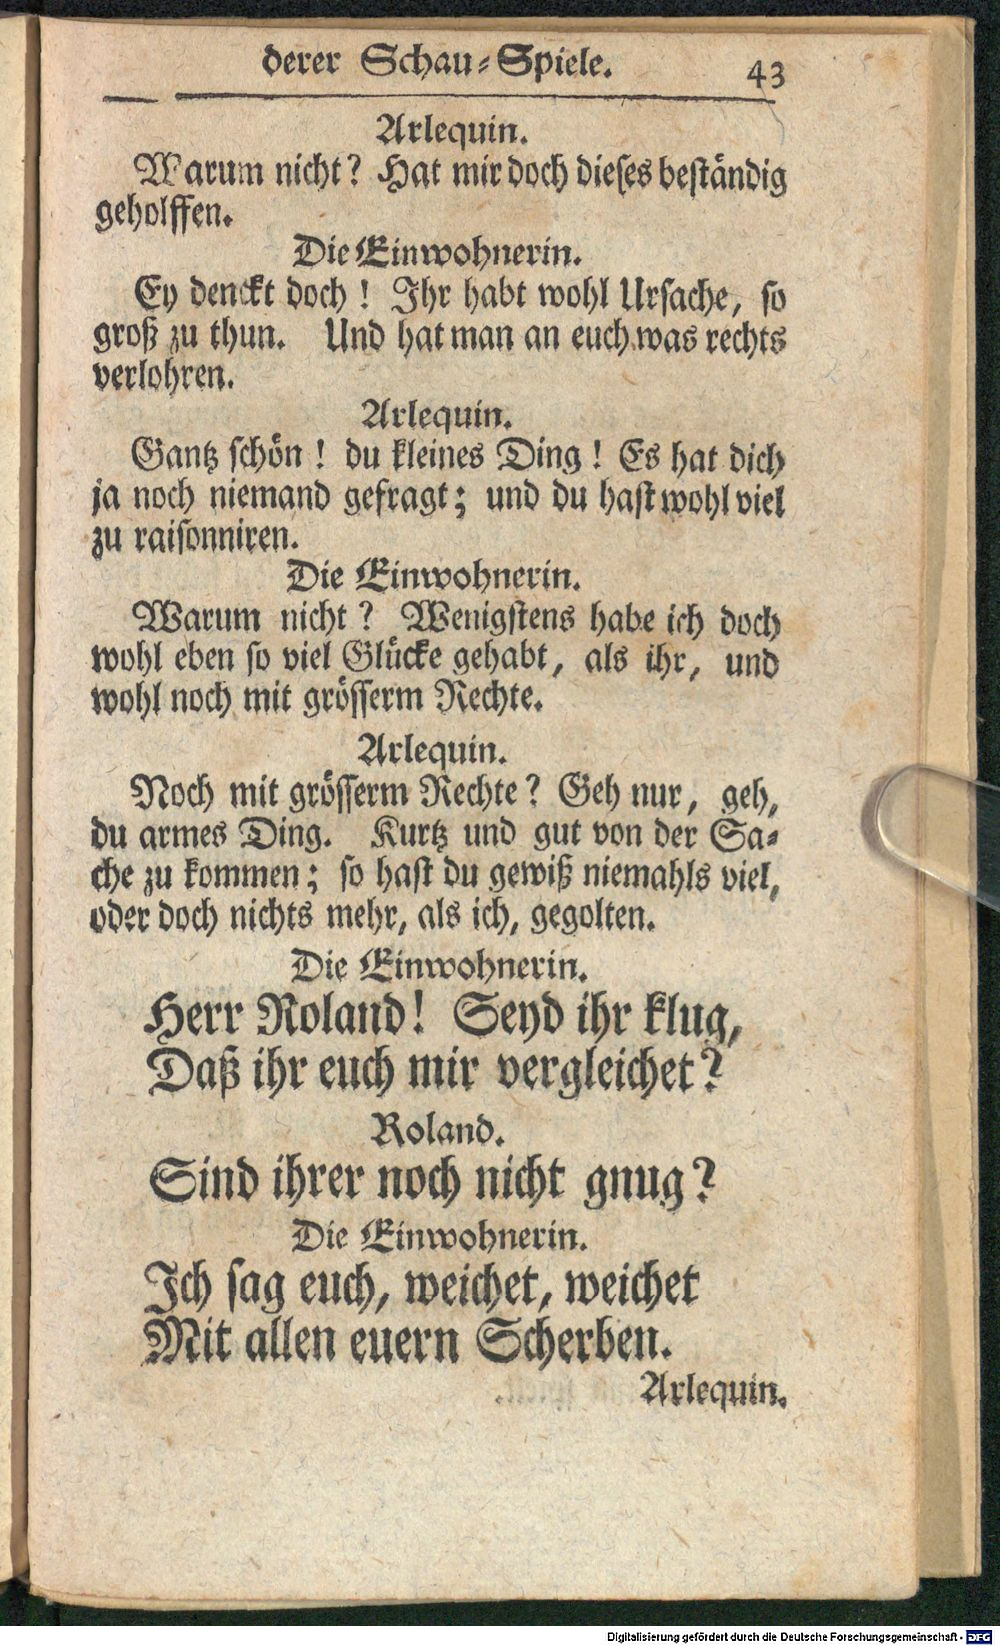 derer Schau-Spiele. 43
Arlequin.
Warum nicht? Hat mir doch dieses beständig
geholffen.
Die Einwohnerin.
Ey denckt doch! Ihr habt wohl Ursache, so
groß zu thun. Und hat man an euch was rechts
verlohren.
Arlequin.
Gantz schön! du kleines Ding! Es hat dich
ja noch niemand gefragt; und du hast wohl viel
zu raisonniren.
Die Einwohnerin.
Warum nicht? Wenigstens habe ich doch
wohl eben so viel Glücke gehabt, als ihr, und
wohl noch mit grösserm Rechte.
Arlequin.
Noch mit grösserm Rechte? Geh nur, geh,
du armes Ding. Kurtz und gut von der Sa-
che zu kommen; so hast du gewiß niemahls viel,
oder doch nichts mehr, als ich, gegolten.
Die Einwohnerin.
Herr Roland! Seyd ihr klug,
Daß ihr euch mir vergleichet?
Roland.
Sind ihrer noch nicht gnug?
Die Einwohnerin.
Ich sag euch, weichet, weichet
Mit allen euern Scherben.
Arlequin.
Digitalisierung gefördert durch die Deutsche Forschungsgemeinschaft - DFG